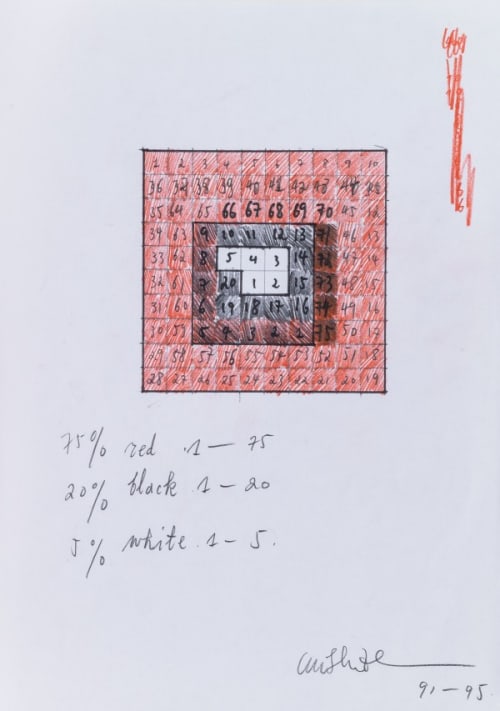 1 2 3 4 5 6 7 8 9 10
36 37 38 39 40 41 42 43 44 11
35 64 65 66 67 68 69 70 45 12
34 63 9 10 11 12 13 71 46 13
33 62 8 5 4 3 14 72 47 14
32 61 7 20 1 2 15 73 48 15
31 60 6 19 18 17 16 74 49 16
30 59 5 4 3 2 1 75 50 17
29 58 57 56 55 54 53 52 51 18
28 27 26 25 24 23 22 21 20 19
75% red 1 — 75
20% black 1 — 20
5% white 1 — 5.
91 - 95.